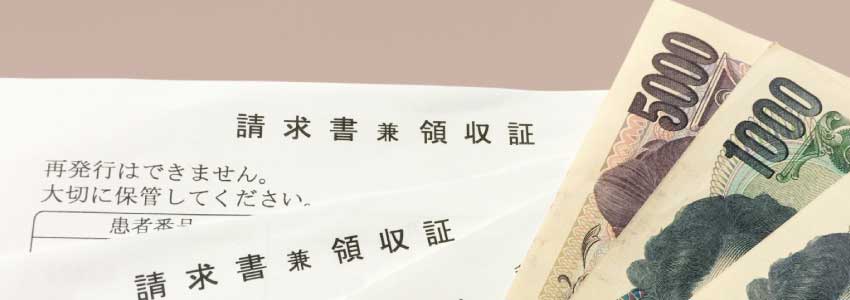 請求書兼領収証
再発行はできません。
大切に保管してください。
患者番号
請求書兼領収証
5000
1000